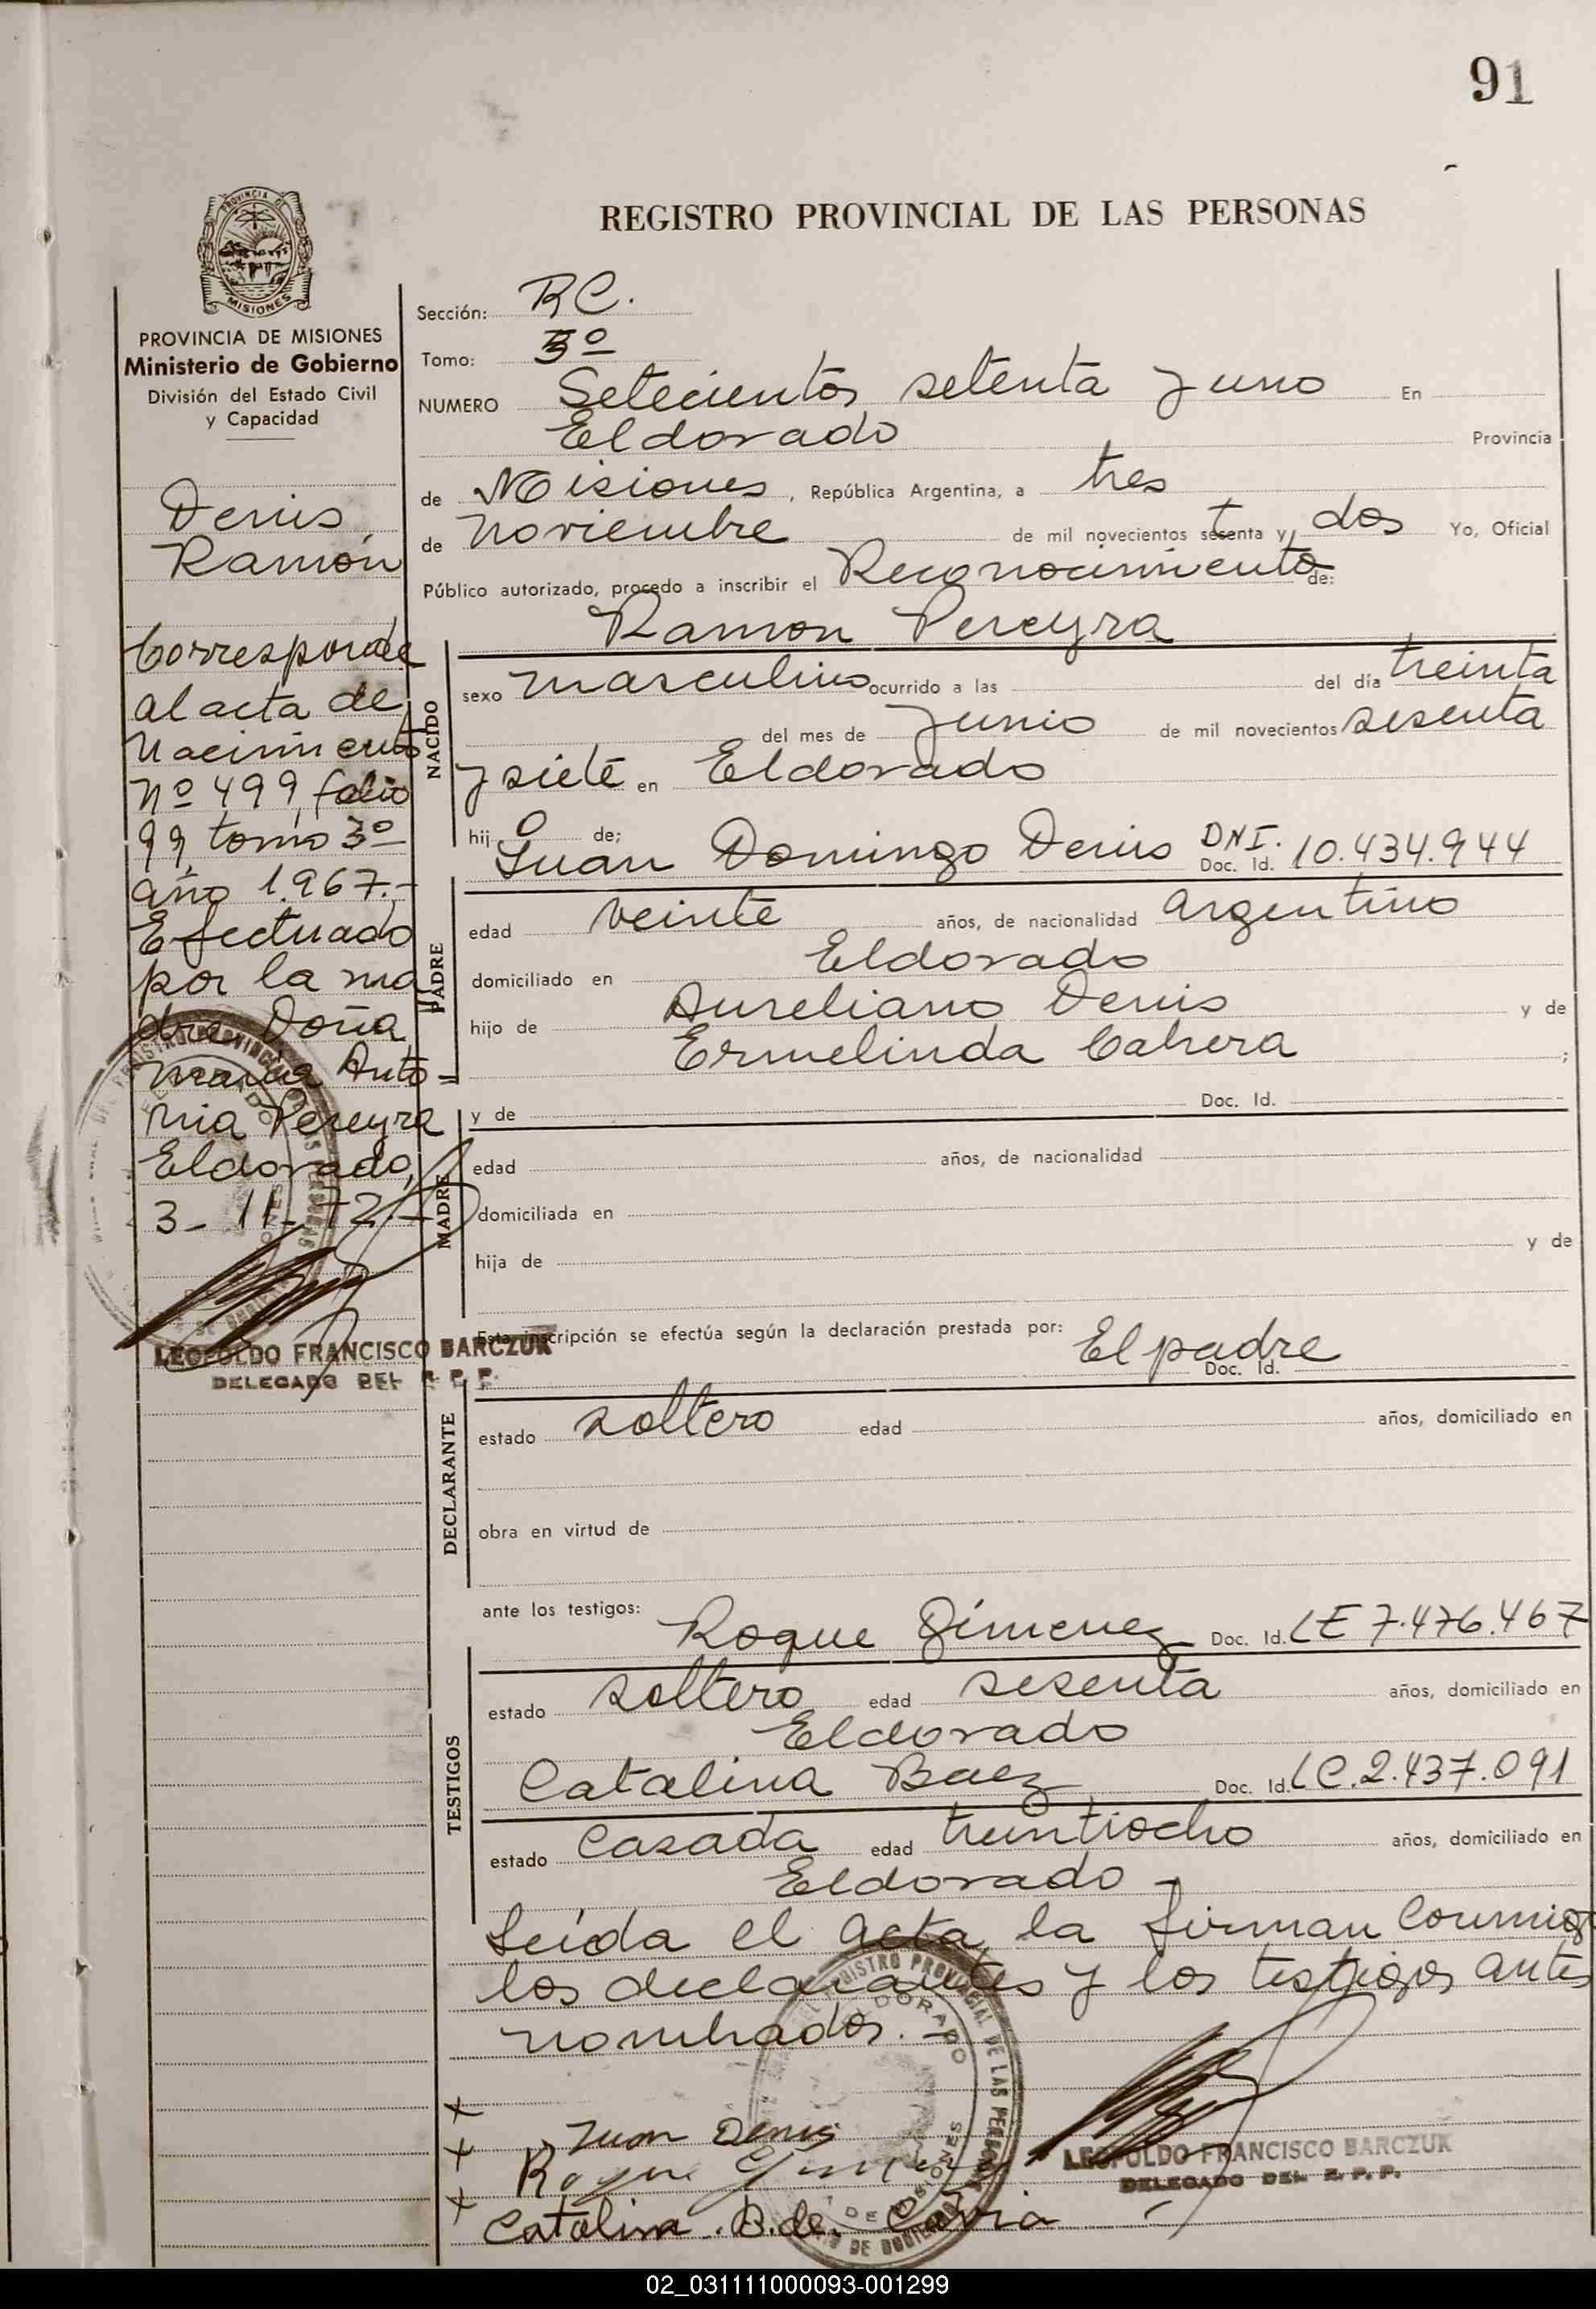 91
PROVINCIA DE
MISIONES
REGISTRO PROVINCIAL DE LAS PERSONAS
PROVINCIA DE MISIONES
Ministerio de Gobierno
División del Estado Civil
y Capacidad
Denis
Ramón
Corresponde
al acta de
nacimiento
Nº 499, folio
99, tomo 3º
año 1.967.-
Efectuado
por la ma
dre Doña
Maria Anto-
nia Pereyra
Eldorado,
3-11-72-
LEOPOLDO FRANCISCO BARCZUK
DELEGADO DEL R. P. P.
Sección: RC.
Tomo: 3º
NUMERO Setecientos setenta y uno En
Eldorado Provincia
de Misiones, República Argentina, a tres
de noviembre de mil novecientos setenta y dos Yo, Oficial
Público autorizado, procedo a inscribir el Reconocimiento de:
Ramon Pereyra
NACIDO
sexo masculino ocurrido a las del día treinta
del mes de junio de mil novecientos sesenta
y siete en Eldorado
hijo de;
Juan Domingo Denis DNI. Doc. Id. 10.434.944
PADRE
edad veinte años, de nacionalidad argentino
domiciliado en Eldorado
hijo de Aureliano Denis y de
Ermelinda Cabrera ;
y de Doc. Id.
MADRE
edad años, de nacionalidad
domiciliada en
hija de y de
Esta inscripción se efectúa según la declaración prestada por: El padre
Doc. Id.
DECLARANTE
estado soltero edad años, domiciliado en
obra en virtud de
ante los testigos:
Roque Gimenez Doc. Id. LE 7.476.467
TESTIGOS
estado soltero edad sesenta años, domiciliado en
Eldorado
Catalina Baez Doc. Id. LC.2.437.091
estado casada edad treintiocho años, domiciliado en
Eldorado -
Leída el acta, la firman conmigo
los declarantes y los testigos antes
nombrados.-
x Juan Denis
x Roque Gimenez
x Catalina .B.de.
LEOPOLDO FRANCISCO BARCZUK
DELEGADO DEL R. P. P.
02_031111000093-001299